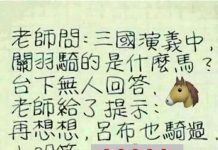 老師問:三國演義中,
關羽騎的是什麼馬?
台下無人回答,
老師給了提示:
再想想,呂布也騎過…